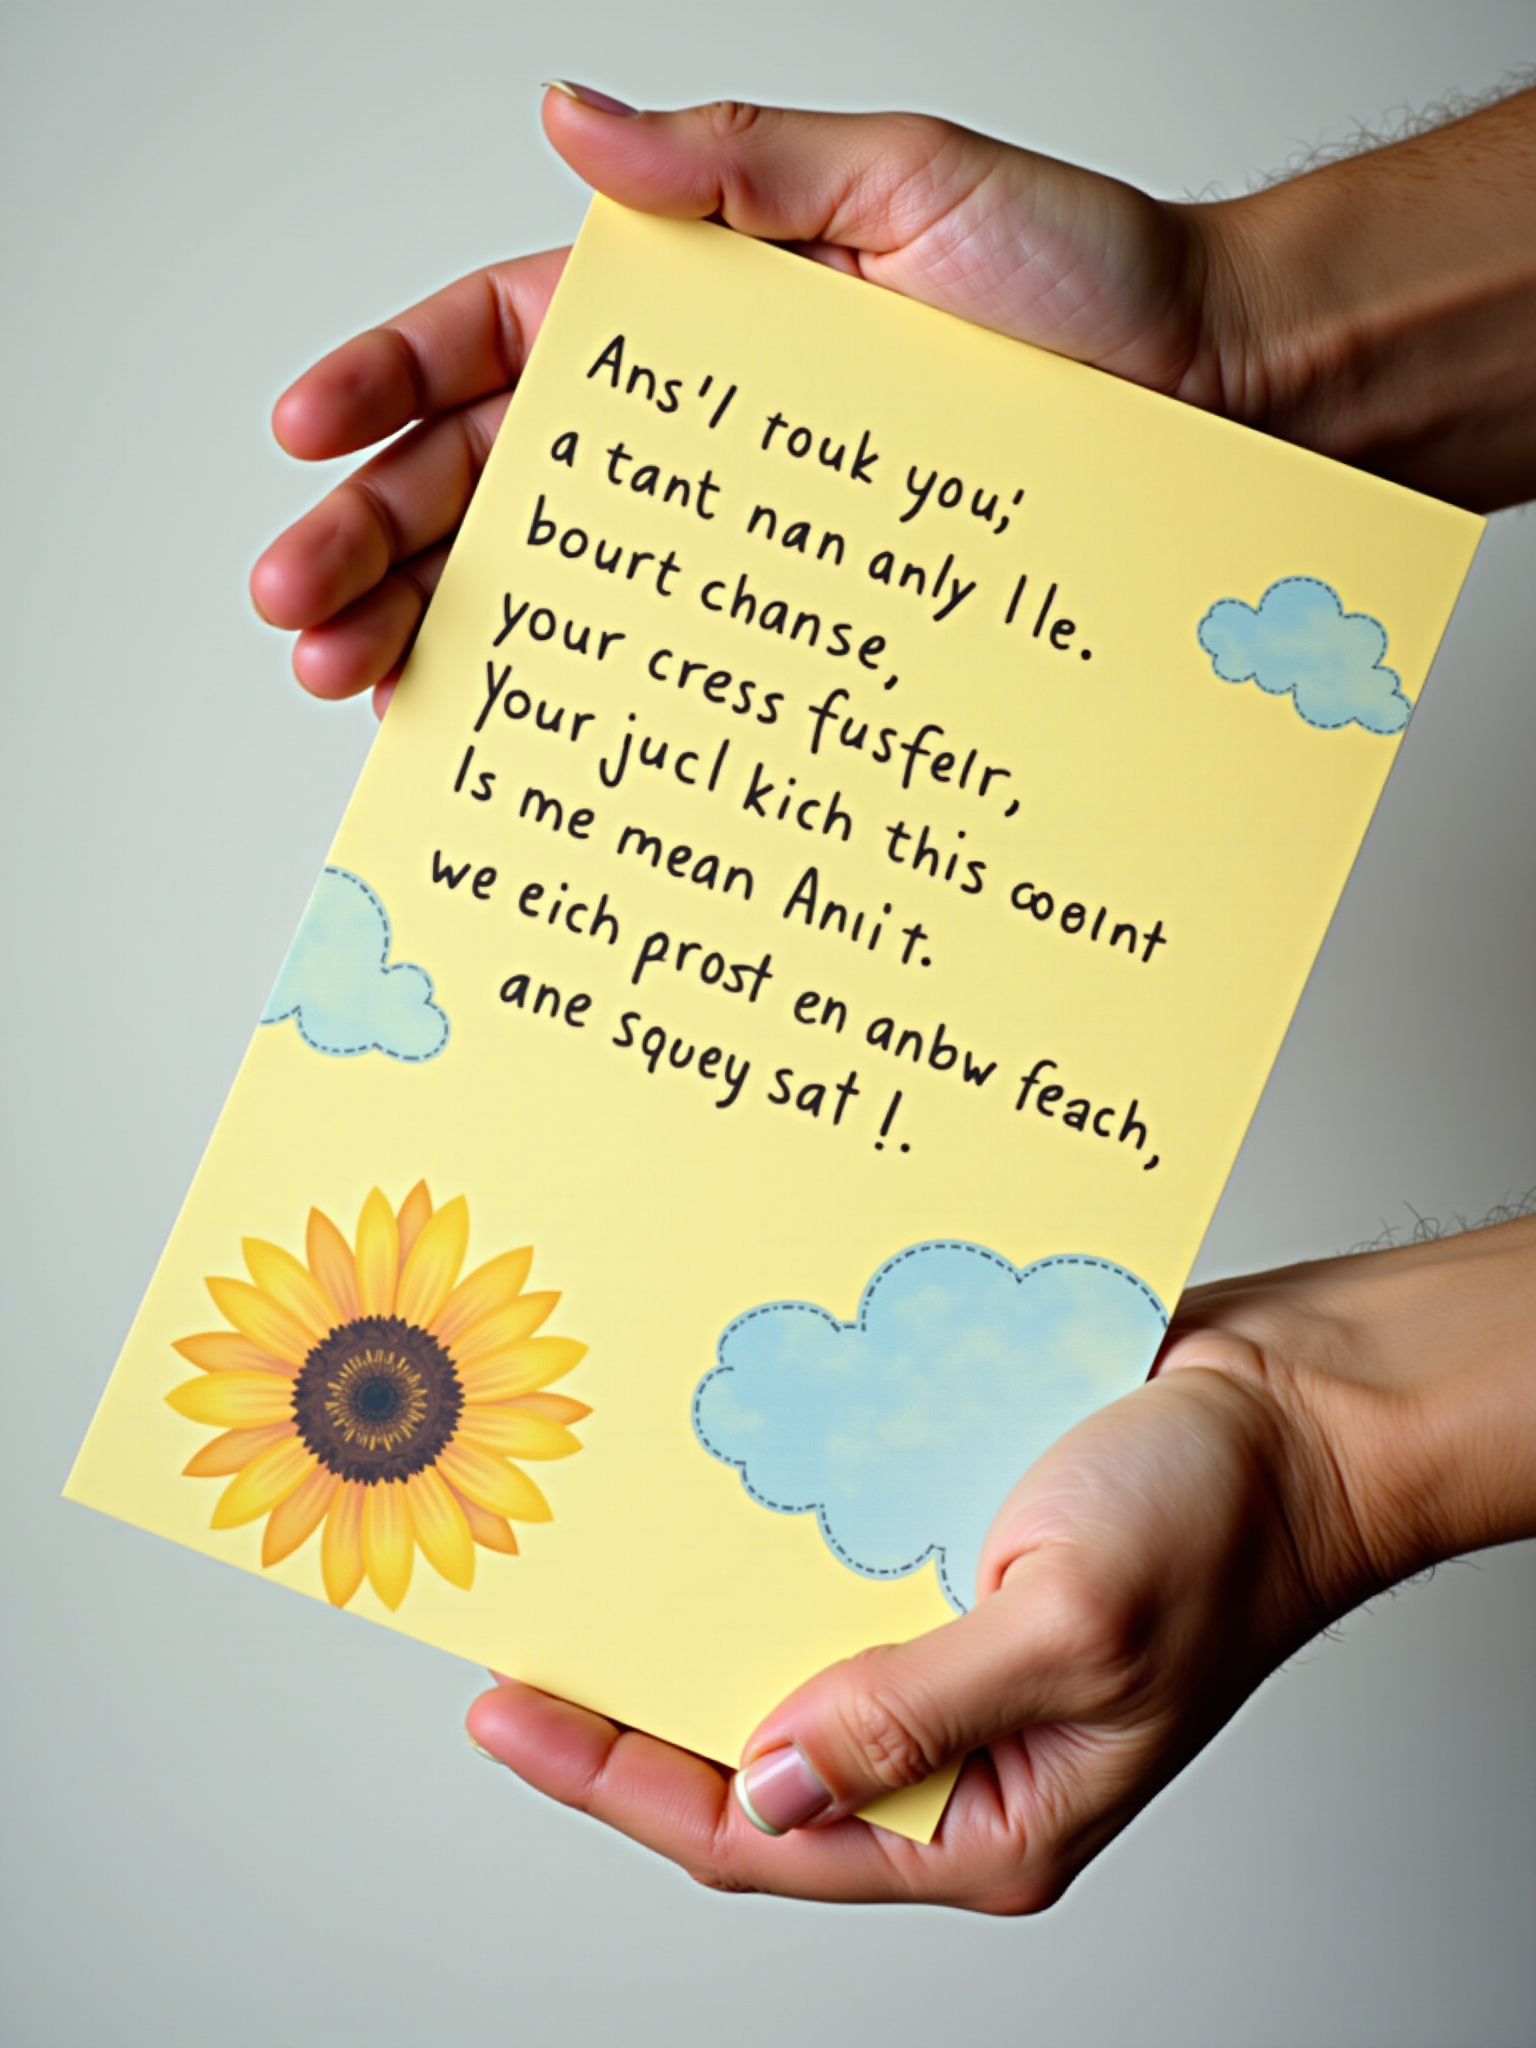 Ans'l touk you;'
a tant nan anly l le.
bourt chanse,
your cress fusfelr,
Your jucl kich this
Is me mean Anlit.
we eich prost en anbw feach,
ane squey sat !.